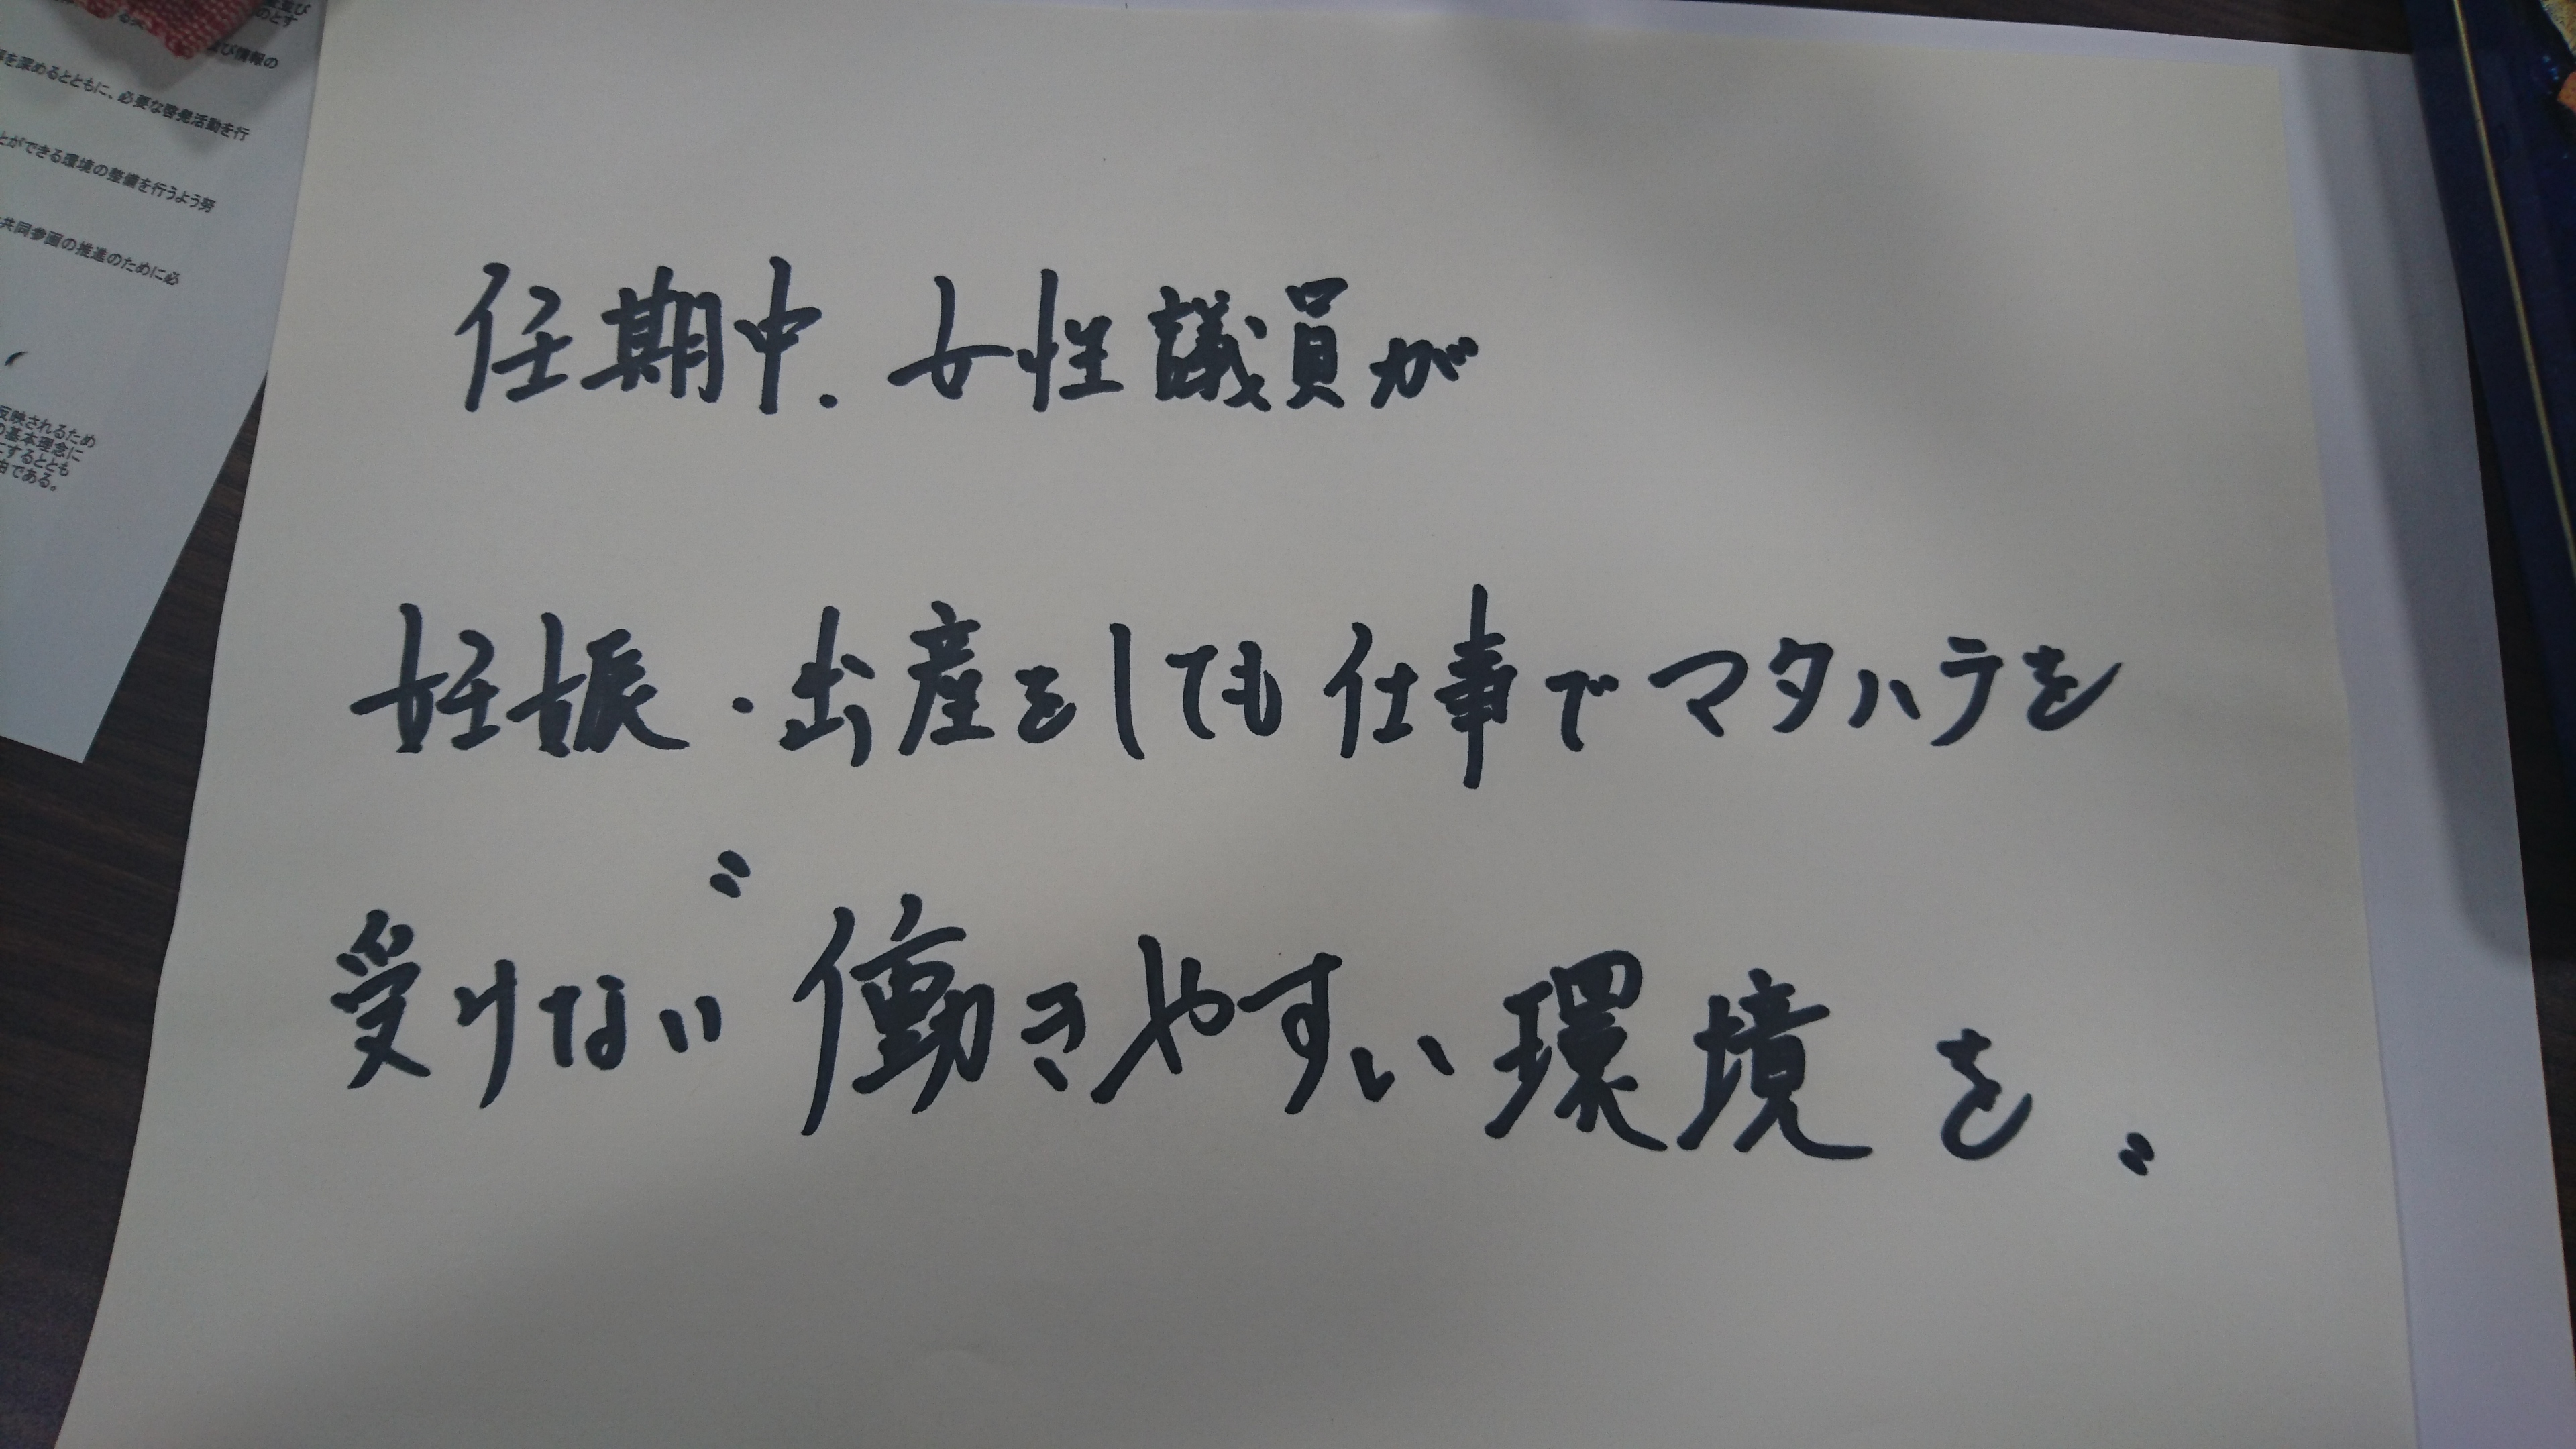 のとす
び情報の
を深めるとともに、必要な啓発活動を行
とができる環境の整備を行うよう努
共同参画の推進のために必
反映されるため
の基本理念に
にするととも
由である。
任期中.女性議員が
妊娠・出産をしても仕事でマタハラを
受けない“働きやすい環境を„